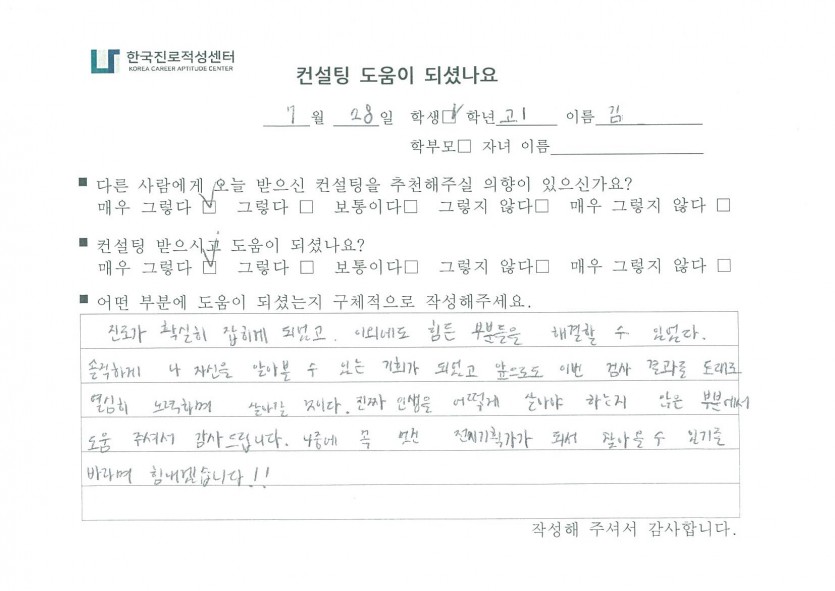 한국진로적성센터
KOREA CAREER APTITUDE CENTER
컨설팅 도움이 되셨나요
7월 28일 학생☑ 학년 고1 이름 김
학부모□ 자녀 이름
■ 다른 사람에게 오늘 받으신 컨설팅을 추천해주실 의향이 있으신가요?
매우 그렇다 ☑ 그렇다 □ 보통이다□ 그렇지 않다□ 매우 그렇지 않다 □
■ 컨설팅 받으시고 도움이 되셨나요?
매우 그렇다 ☑ 그렇다 □ 보통이다□ 그렇지 않다□ 매우 그렇지 않다 □
■ 어떤 부분에 도움이 되셨는지 구체적으로 작성해주세요.
진로가 확실히 잡히게 되었고. 이외에도 힘든 부분들을 해결할 수 있었다.
솔직하게 나 자신을 알아볼 수 있는 기회가 되었고 앞으로도 이번 검사 결과를 토대로
열심히 노력하며 살아갈 것이다. 진짜 인생을 어떻게 살아야 하는지 않은 부분에서
도움 주셔서 감사드립니다. 나중에 꼭 멋진 전시기획가가 되서 찾아올 수 있기를
바라며 힘내겠습니다!!
작성해 주셔서 감사합니다.